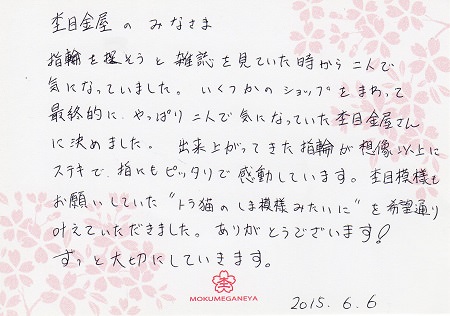 杢目金屋のみなさま
指輪を探そうと雑誌を見ていた時から二人で
気になっていました。いくつかのショップをまわって
最終的に、やっぱり二人で気になっていた杢目金屋さん
に決めました。出来上がってきた指輪が想像以上に
ステキで、指にもピッタリで感動しています。杢目模様も
お願いしていた“トラ猫のしま模様みたいに”を希望通り
叶えていただきました。ありがとうございます!
ずっと大切にしていきます。
MOKUMEGANEYA
2015.6.6